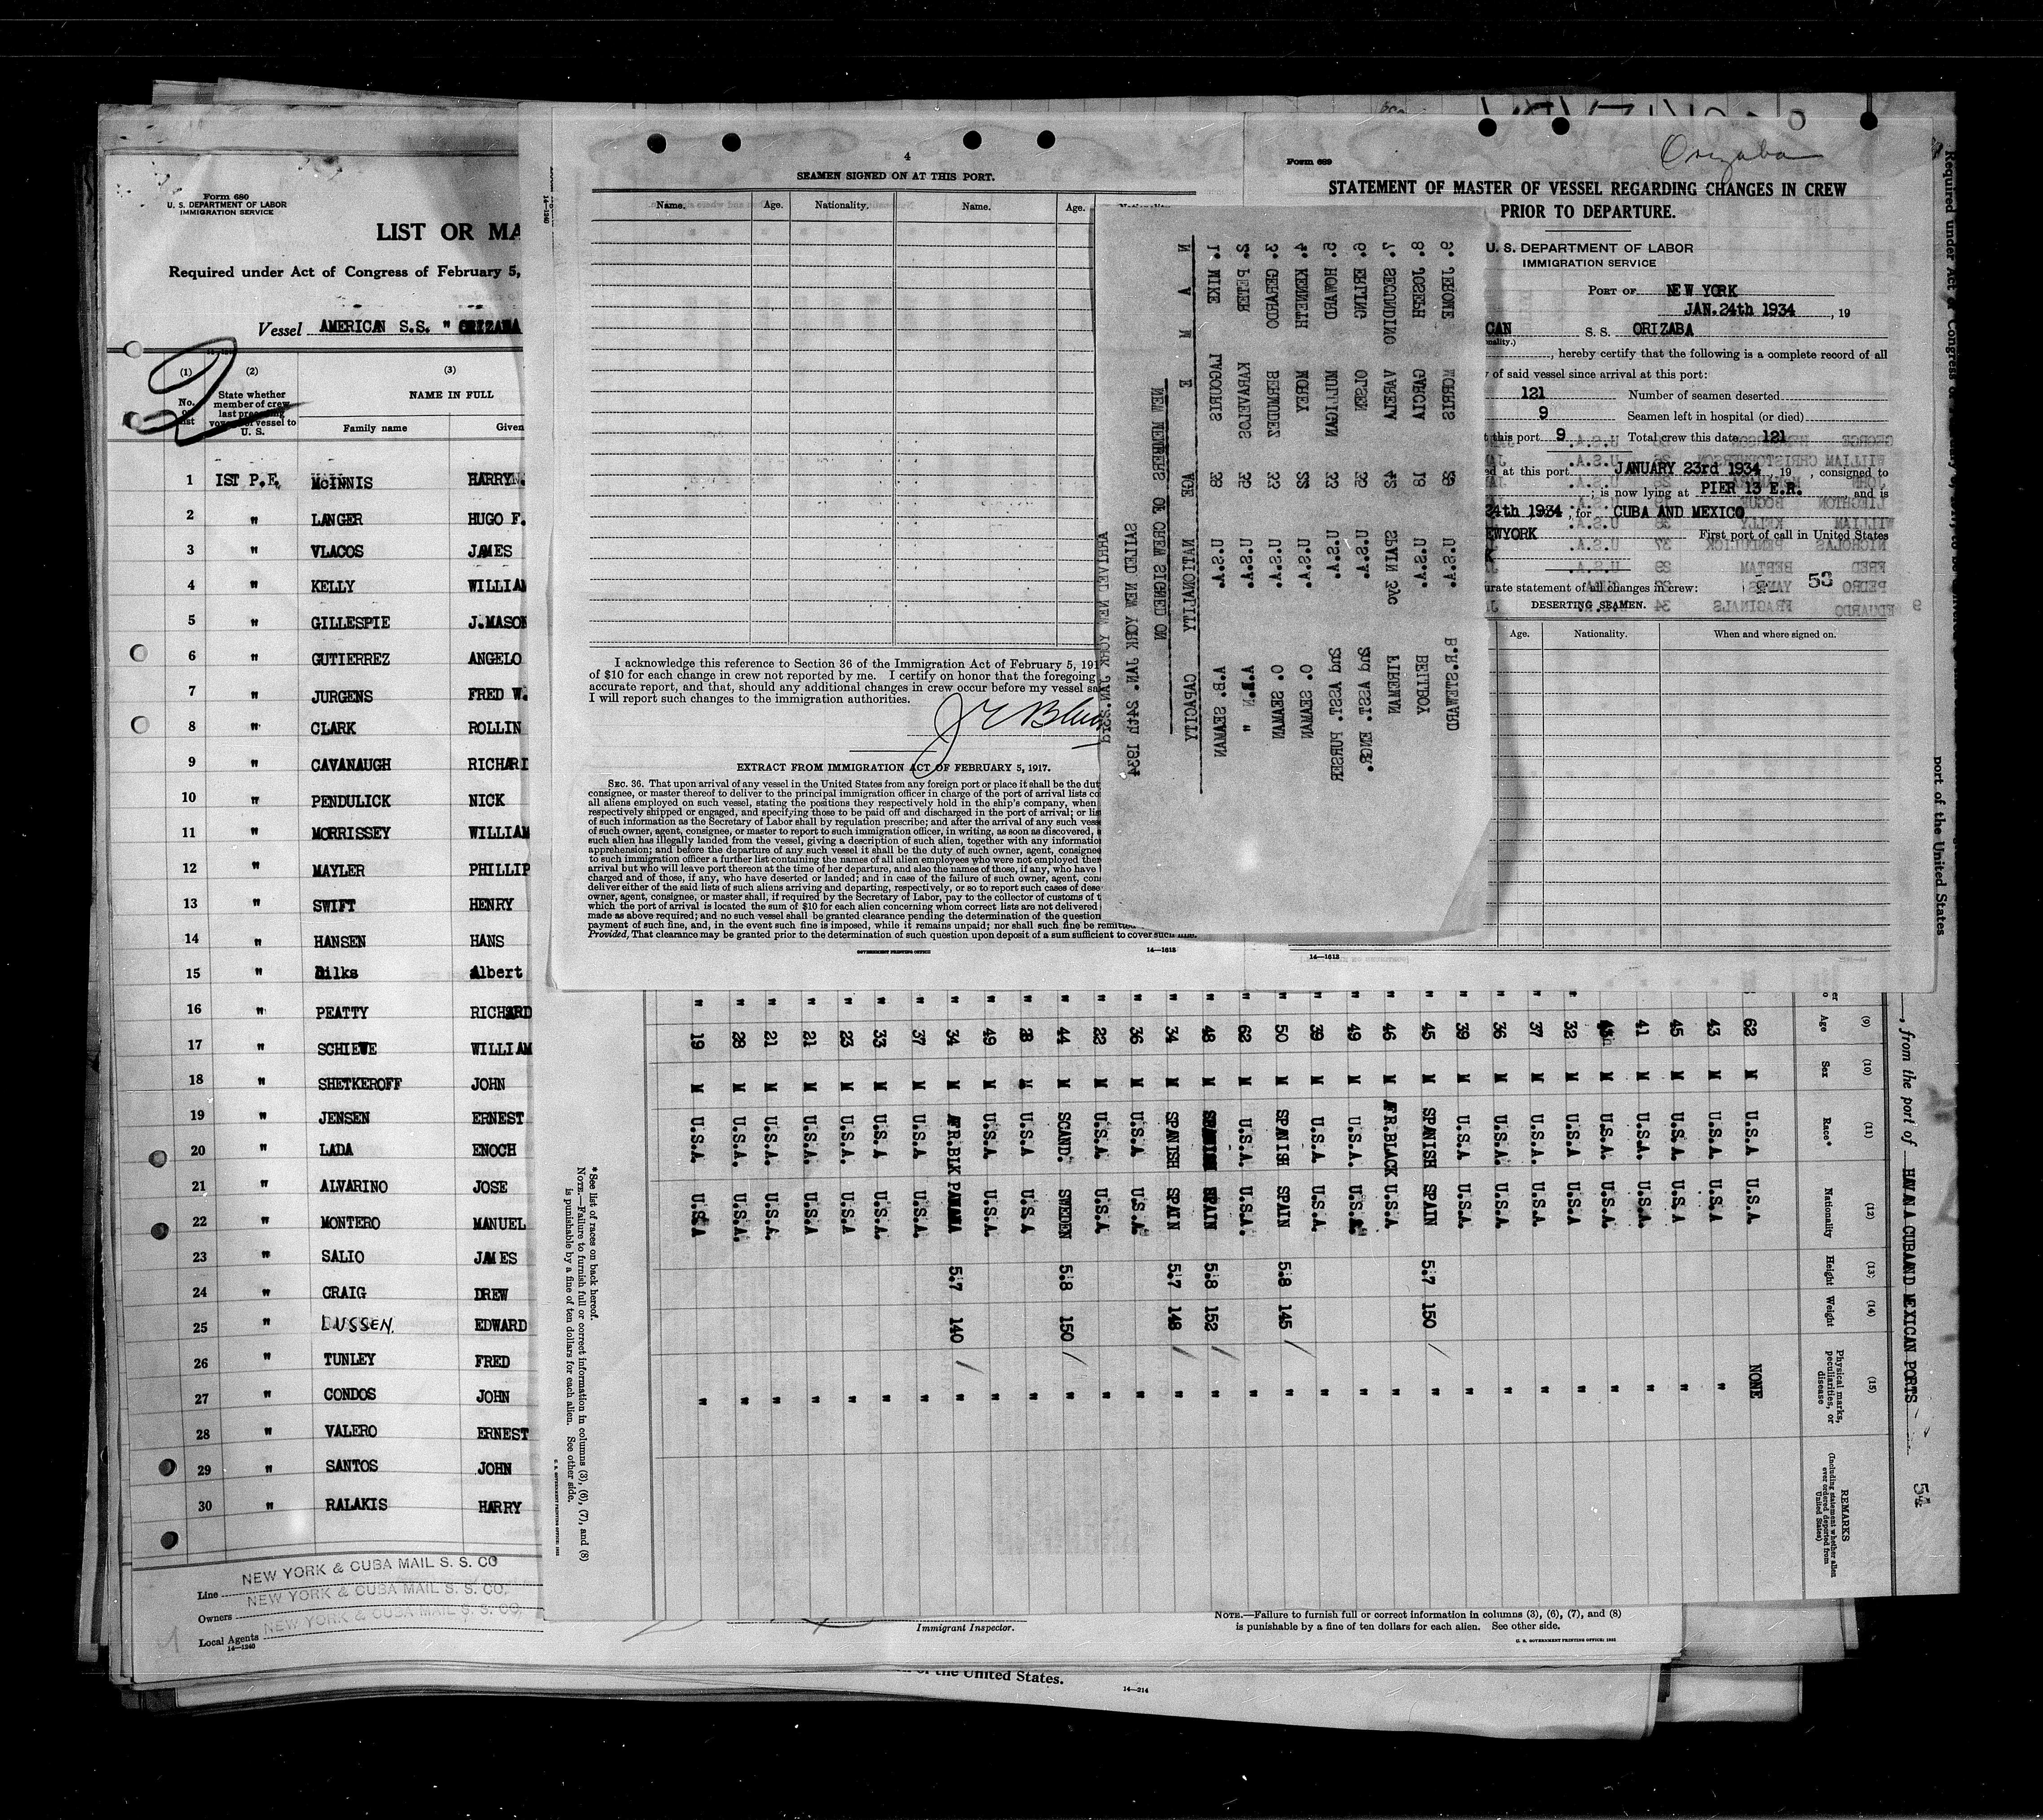 Form 680
U. S. DEPARTMENT OF LABOR
IMMIGRATION SERVICE
LIST OR MA
Required under Act of Congress of February 5,
Vessel AMERICAN S.S. " ORIZABA
(1) (2) (3)
No. on list
State whether member of crew last preceding voyage of vessel to U. S.
NAME IN FULL
Family name Given
1 IST P.E. McINNIS HARRY N.
2 " LANGER HUGO F.
3 " VLACOS JAMES
4 " KELLY WILLIAM
5 " GILLESPIE J.MASON
6 " GUTIERREZ ANGELO
7 " JURGENS FRED W.
8 " CLARK ROLLIN
9 " CAVANAUGH RICHARD
10 " PENDULICK NICK
11 " MORRISSEY WILLIAM
12 " MAYLER PHILLIP
13 " SWIFT HENRY
14 " HANSEN HANS
15 " Dilks Albert
16 " PEATTY RICHARD
17 " SCHIEWE WILLIAM
18 " SHETKEROFF JOHN
19 " JENSEN ERNEST
20 " LADA ENOCH
21 " ALVARINO JOSE
22 " MONTERO MANUEL
23 " SALIO JAMES
24 " CRAIG DREW
25 " LUSSEN. EDWARD
26 " TUNLEY FRED
27 " CONDOS JOHN
28 " VALERO ERNEST
29 " SANTOS JOHN
30 " RALAKIS HARRY
Line NEW YORK & CUBA MAIL S. S. CO
Owners NEW YORK & CUBA MAIL S. S. CO.
Local Agents NEW YORK & CUBA MAIL S. S. CO.
14—1240
4
SEAMEN SIGNED ON AT THIS PORT.
Name. Age. Nationality. Name. Age.
I acknowledge this reference to Section 36 of the Immigration Act of February 5, 191
of $10 for each change in crew not reported by me. I certify on honor that the foregoing
accurate report, and that, should any additional changes in crew occur before my vessel sa
I will report such changes to the immigration authorities.
EXTRACT FROM IMMIGRATION ACT OF FEBRUARY 5, 1917.
SEC. 36. That upon arrival of any vessel in the United States from any foreign port or place it shall be the dut
consignee, or master thereof to deliver to the principal immigration officer in charge of the port of arrival lists co
all aliens employed on such vessel, stating the positions they respectively hold in the ship's company, when
respectively shipped or engaged, and specifying those to be paid off and discharged in the port of arrival; or lis
of such information as the Secretary of Labor shall by regulation prescribe; and after the arrival of any such vess
of such owner, agent, consignee, or master to report to such immigration officer, in writing, as soon as discovered,
such alien has illegally landed from the vessel, giving a description of such alien, together with any information
apprehension; and before the departure of any such vessel it shall be the duty of such owner, agent, consignee
to such immigration officer a further list containing the names of all alien employees who were not employed ther
arrival but who will leave port thereon at the time of her departure, and also the names of those, if any, who have
charged and of those, if any, who have deserted or landed; and in case of the failure of such owner, agent, con
deliver either of the said lists of such aliens arriving and departing, respectively, or so to report such cases of dese
owner, agent, consignee, or master shall, if required by the Secretary of Labor, pay to the collector of customs of t
which the port of arrival is located the sum of $10 for each alien concerning whom correct lists are not delivered
made as above required; and no such vessel shall be granted clearance pending the determination of the question
payment of such fine, and, in the event such fine is imposed, while it remains unpaid; nor shall such fine be remitted
Provided, That clearance may be granted prior to the determination of such question upon deposit of a sum sufficient to cover such fine.
GOVERNMENT PRINTING OFFICE 14—1613
ARRIVED NEW YORK JAN. 23rd
SAILED NEW YORK JAN. 24th 1934
NEW MEMBERS OF CREW SIGNED ON
N A M E AGE NATIONALITY CAPACITY
1. MIKE LAGOURIS 38 U.S.A. A.B. SEAMAN
2. PETER KARAVELOS 35 U.S.A. "
3. GERARDO BERMUDEZ 33 U.S.A. O. SEAMAN
4. KENNETH MOREY 22 U.S.A. O. SEAMAN
5. HOWARD MULLIGAN 33 U.S.A. 2nd ASST. PURSER
6. ERLING OLSEN 35 U.S.A. 2nd ASST. ENGR.
7. SEGUNDINO VARELA 43 SPAIN FIREMAN
8. JOSEPH GARCIA 18 U.S.A. BELLBOY
9. JEROME MORRIS U.S.A. STEWARD
Form 689
Orizaba
STATEMENT OF MASTER OF VESSEL REGARDING CHANGES IN CREW
PRIOR TO DEPARTURE.
U. S. DEPARTMENT OF LABOR
IMMIGRATION SERVICE
PORT OF NEW YORK
JAN.24th 1934, 19
CAN S. S. ORIZABA
, hereby certify that the following is a complete record of all
of said vessel since arrival at this port:
121 Number of seamen deserted
9 Seamen left in hospital (or died)
t this port 9 Total crew this date 121
ed at this port JANUARY 23rd 1934, 19 , consigned to
; is now lying at PIER 13 E.R. and is
24th 1934, for CUBA AND MEXICO
EWYORK First port of call in United States
urate statement of all changes in crew: 53
DESERTING SEAMEN.
Age. Nationality. When and where signed on.
14—1613
, from the port of HAVANA CUBA AND MEXICAN PORTS
54
(9) (10) (11) (12) (13) (14) (15)
Age Sex Race* Nationality Height Weight Physical marks, peculiarities, or disease
REMARKS
(Including statement whether alien ever ordered deported from United States)
62 M U.S.A U.S.A. NONE
43 M U.S.A. U.S.A "
45 M U.S.A U.S.A "
41 M U.S.A. U.S.A. "
M U.S.A. U.S.A. "
32 M U.S.A. U.S.A "
37 M U.S.A. U.S.A "
36 M U.S.A. U.S.A. "
39 M U.S.A. U.S.A. "
45 M SPANISH SPAIN 5:7 150 "
46 M AFR.BLACK U.S.A "
49 M U.S.A. U.S.A. "
39 M U.S.A U.S.A. "
50 M SPANISH SPAIN 5:8 145 "
62 M U.S.A. U.S.A. "
48 M SPANISH SPAIN 5:8 152 "
34 M SPANISH SPAIN 5:7 148 "
36 M U.S.A U.S.A. "
22 M U.S.A. U.S.A "
44 M SCAND. SWEDEN 5:8 150 "
28 M U.S.A. U.S.A "
49 M U.S.A. U.S.A. "
34 M AFR.BLK PANAMA 5:7 140 "
37 M U.S.A U.S.A. "
33 M U.S.A U.S.A. "
23 M U.S.A. U.S.A "
21 M U.S.A. U.S.A "
21 M U.S.A. U.S.A. "
28 M U.S.A. U.S.A. "
19 M U.S.A. U.S.A "
*See list of races on back hereof.
NOTE.—Failure to furnish full or correct information in columns (3), (6), (7), and (8)
is punishable by a fine of ten dollars for each alien. See other side.
Required under Act of Congress
port of the United States
Immigrant Inspector.
NOTE.—Failure to furnish full or correct information in columns (3), (6), (7), and (8)
is punishable by a fine of ten dollars for each alien. See other side.
U. S. GOVERNMENT PRINTING OFFICE: 1932
of the United States.
14—214